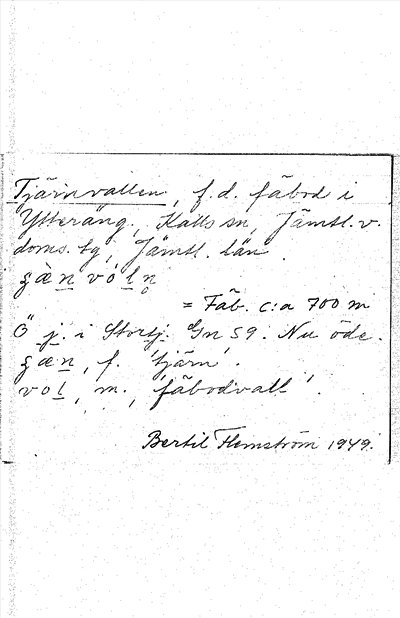 Tjärnvallen, f.d. fäbod i
Ytteräng, Kalls sn, Jämtl. v.
doms. tg, Jämtl. län.
gæ̀n vóln̥
= Fäb. c:a 700 m
Ö j. i Storsj. Gn 59. Nu öde.
gæn, f. 'tjärn'.
vol, m., 'fäbodvall'.
Bertil Flemström 1949.